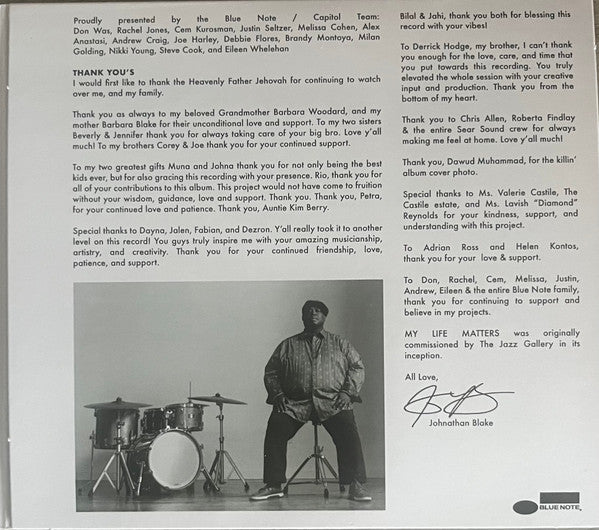 Proudly presented by the Blue Note / Capitol Team:
Don Was, Rachel Jones, Cem Kurosman, Justin Seltzer, Melissa Cohen, Alex
Anastasi, Andrew Craig, Joe Harley, Debbie Flores, Brandy Montoya, Milan
Golding, Nikki Young, Steve Cook, and Eileen Whelehan
THANK YOU'S
I would first like to thank the Heavenly Father Jehovah for continuing to watch
over me, and my family.
Thank you as always to my beloved Grandmother Barbara Woodard, and my
mother Barbara Blake for their unconditional love and support. To my two sisters
Beverly & Jennifer thank you for always taking care of your big bro. Love y'all
much! To my brothers Corey & Joe thank you for your continued support.
To my two greatest gifts Muna and Johna thank you for not only being the best
kids ever, but for also gracing this recording with your presence. Rio, thank you for
all of your contributions to this album. This project would not have come to fruition
without your wisdom, guidance, love and support. Thank you. Thank you, Petra,
for your continued love and patience. Thank you, Auntie Kim Berry.
Special thanks to Dayna, Jalen, Fabian, and Dezron. Y'all really took it to another
level on this record! You guys truly inspire me with your amazing musicianship,
artistry, and creativity. Thank you for your continued friendship, love,
patience, and support.
Bilal & Jahi, thank you both for blessing this
record with your vibes!
To Derrick Hodge, my brother, I can't thank
you enough for the love, care, and time that
you put towards this recording. You truly
elevated the whole session with your creative
input and production. Thank you from the
bottom of my heart.
Thank you to Chris Allen, Roberta Findlay
& the entire Sear Sound crew for always
making me feel at home. Love y'all much!
Thank you, Dawud Muhammad, for the killin'
album cover photo.
Special thanks to Ms. Valerie Castile, The
Castile estate, and Ms. Lavish "Diamond"
Reynolds for your kindness, support, and
understanding with this project.
To Adrian Ross and Helen Kontos,
thank you for your love & support.
To Don, Rachel, Cem, Melissa, Justin,
Andrew, Eileen & the entire Blue Note family,
thank you for continuing to support and
believe in my projects.
MY LIFE MATTERS was originally
commissioned by The Jazz Gallery in its
inception.
All Love,
Johnathan Blake
BLUE NOTE